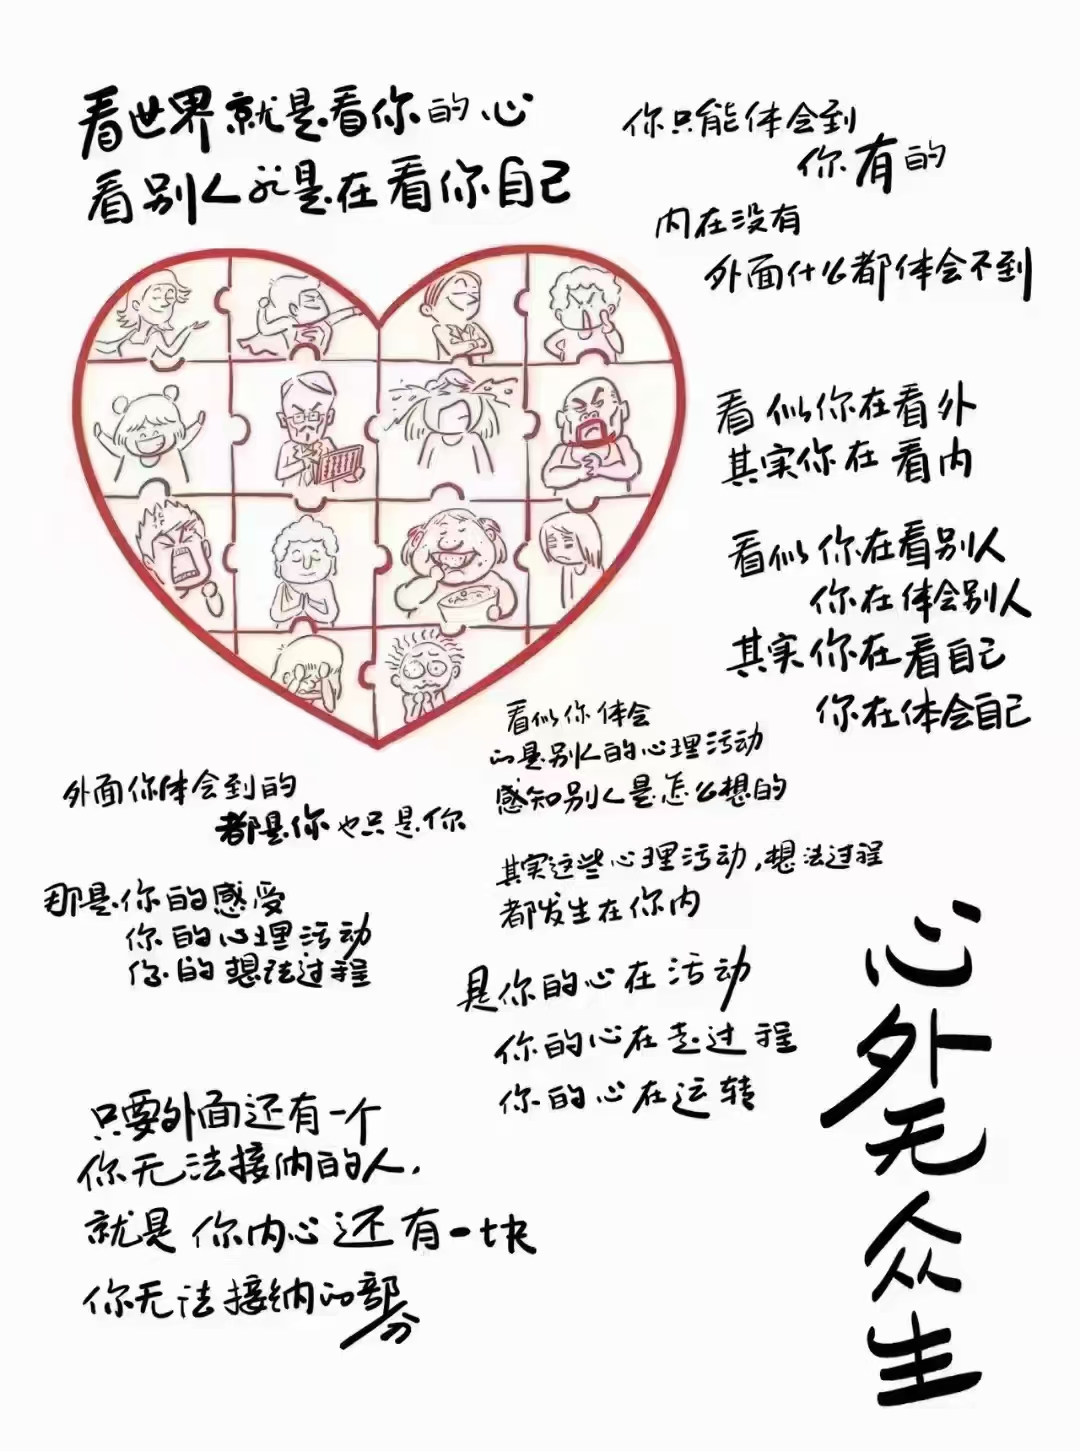 看世界就是看你的心
看别人就是在看你自己
你只能体会到
你有的
内在没有
外面什么都体会不到
看似你在看外
其实你在看内
看似你在看别人
你在体会别人
其实你在看自己
你在体会自己
看似你体会
的是别人的心理活动
感知别人是怎么想的
其实这些心理活动,想法过程
都发生在你内
是你的心在活动
你的心在走过程
你的心在运转
外面你体会到的
都是你也只是你
那是你的感受
你的心理活动
你的想法过程
只要外面还有一个
你无法接纳的人,
就是你内心还有一块
你无法接纳的部分
心外无众生